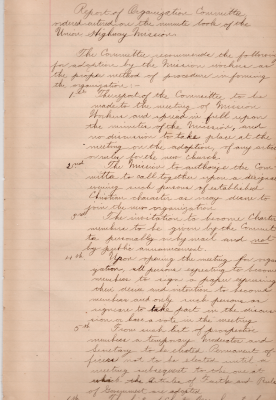 Report of Organization Committee
ordered written on the minute book of the
Union Highway Mission
The Committee recommends the following
for adoption by the Mission workers as
the proper method of procedure in forming
the organization :-
1st The report of the Committee to be
made to the meeting of Mission
Workers and spread in full upon
the minutes of the Mission, and
no discussion to take place at the
meeting on the adoption of any articles
or rules for the new church.
2nd The Mission to authorize the Com
mittee to call together upon a
evening such persons of established
Christian character as may desire to
join the new organization
3rd The invitation to become Charter
members to be given by the Committ
ee personally or by mail and not
by public announcement.
4th Upon opening the meeting for organi
zation, all persons agreeing to become
members to sign a paper expressing
their desire and intention to become
members and only such persons as
sign are to take part in the discus
sion or have a vote in the meeting
5th From such list of prospective
members a temporary Moderator and
Secretary to be elected. Permanent of
ficers not to be elected until a
meeting subsequent to the one at
which the Articles of Faith and Rules
of Government are adopted